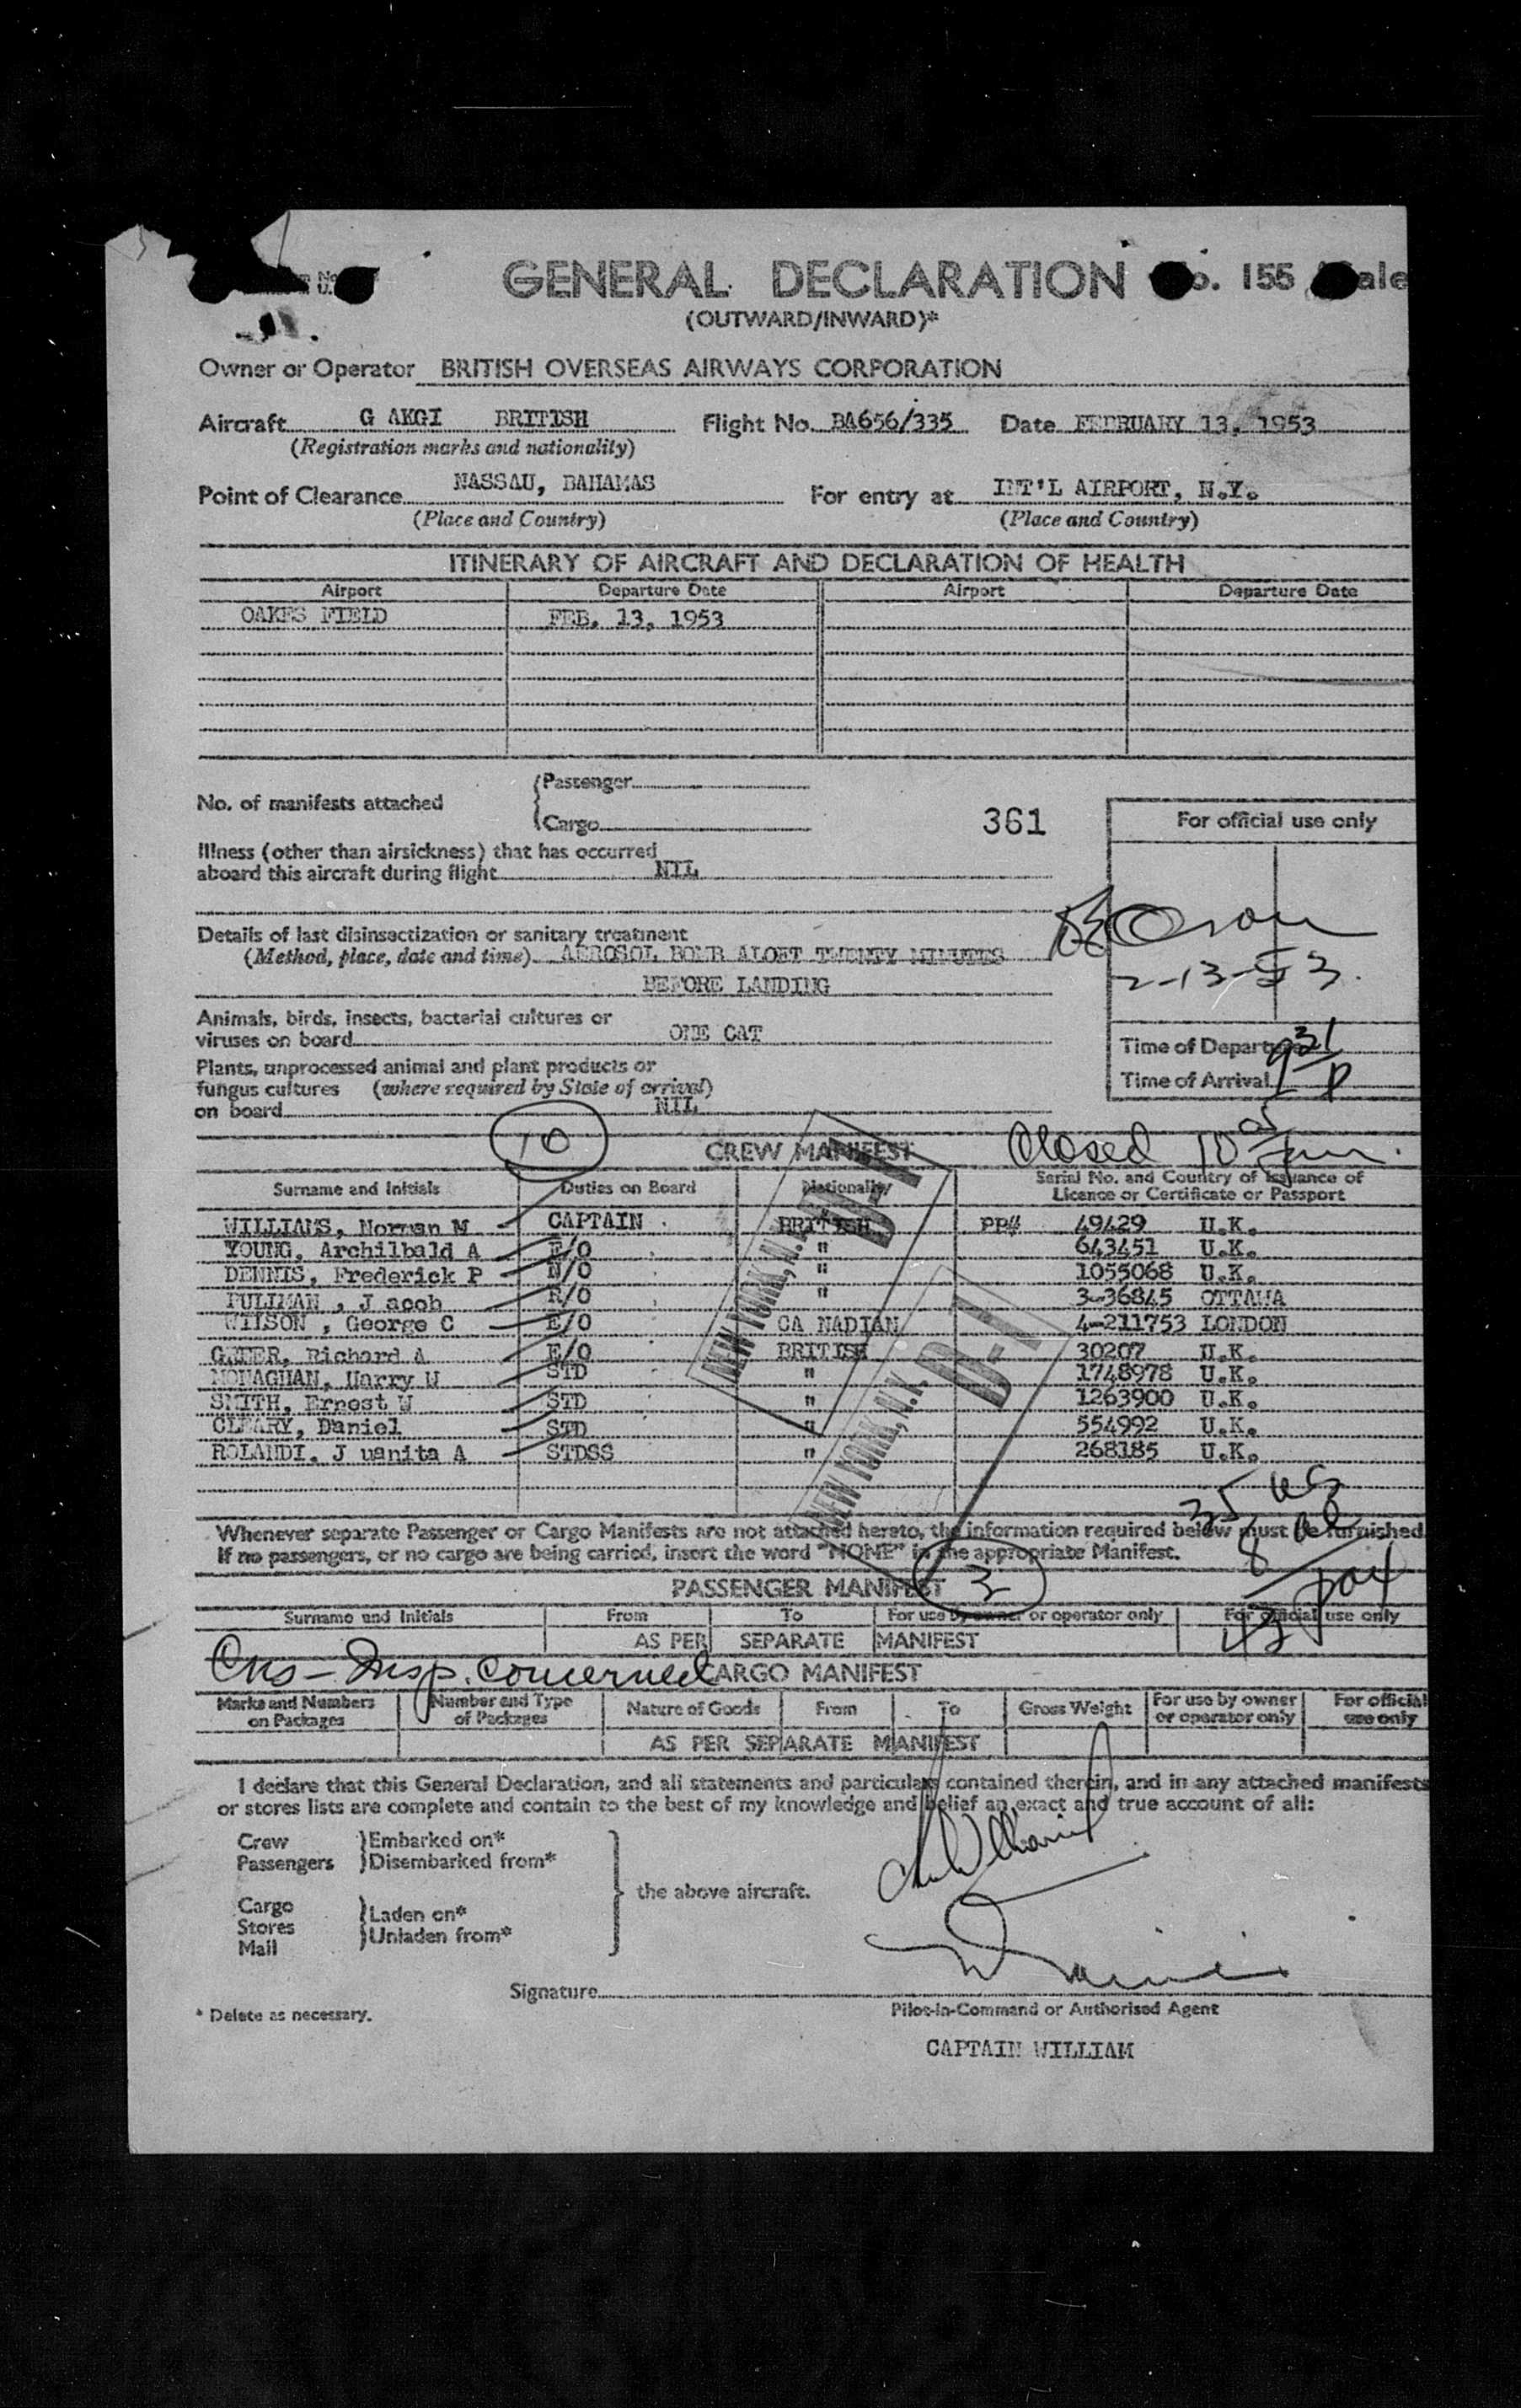 GENERAL DECLARATION
155
(OUTWARD/INWARD)*
Owner or Operator BRITISH OVERSEAS AIRWAYS CORPORATION
Aircraft G AKGI BRITISH Flight No. BA656/335 Date FEBRUARY 13, 1953
(Registration marks and nationality)
Point of Clearance NASSAU, BAHAMAS For entry at INT'L AIRPORT, N.Y.
(Place and Country) (Place and Country)
ITINERARY OF AIRCRAFT AND DECLARATION OF HEALTH
Airport Departure Date Airport Departure Date
OAKES FIELD FEB. 13, 1953
No. of manifests attached
Passenger
Cargo
361
For official use only
Illness (other than airsickness) that has occurred
aboard this aircraft during flight NIL
Details of last disinsectization or sanitary treatment
(Method, place, date and time) AEROSOL BOMB ALOFT TWENTY MINUTES
BEFORE LANDING
2-13-53.
Animals, birds, insects, bacterial cultures or
viruses on board ONE CAT
Time of Departure
Time of Arrival 9 31 P
Plants, unprocessed animal and plant products or
fungus cultures (where required by State of arrival)
on board NIL
10
CREW MANIFEST
Closed 10
Surname and Initials Duties on Board Nationality Serial No. and Country of Issuance of
Licence or Certificate or Passport
WILLIAMS, Norman M CAPTAIN BRITISH PP# 49429 U.K.
YOUNG, Archilbald A F/O " 643451 U.K.
DENNIS, Frederick P N/O " 1055068 U.K.
PULLMAN , J acob R/O " 3-36845 OTTAWA
WILSON , George C E/O CA NADIAN 4-211753 LONDON
GREER, Richard A E/O BRITISH 30207 U.K.
MONAGHAN, Harry W STD " 1748978 U.K.
SMITH, Ernest W STD " 1263900 U.K.
CLEARY, Daniel STD " 554992 U.K.
ROLANDI, J uanita A STDSS " 268185 U.K.
NEW YORK, N.Y.
NEW YORK, N.Y.
35 US
8
43 pax
Whenever separate Passenger or Cargo Manifests are not attached hereto, the information required below must be furnished.
If no passengers, or no cargo are being carried, insert the word "NONE" in the appropriate Manifest.
PASSENGER MANIFEST
3
Surname and Initials From To For use by owner or operator only For official use only
AS PER SEPARATE MANIFEST
Insp. concerned
CARGO MANIFEST
Marks and Numbers on Packages Number and Type of Packages Nature of Goods From To Gross Weight For use by owner or operator only For official use only
AS PER SEPARATE MANIFEST
I declare that this General Declaration, and all statements and particulars contained therein, and in any attached manifests
or stores lists are complete and contain to the best of my knowledge and belief an exact and true account of all:
Crew Embarked on*
Passengers Disembarked from*
the above aircraft.
Cargo
Stores Laden on*
Mail Unladen from*
Signature
Pilot-in-Command or Authorised Agent
* Delete as necessary.
CAPTAIN WILLIAM